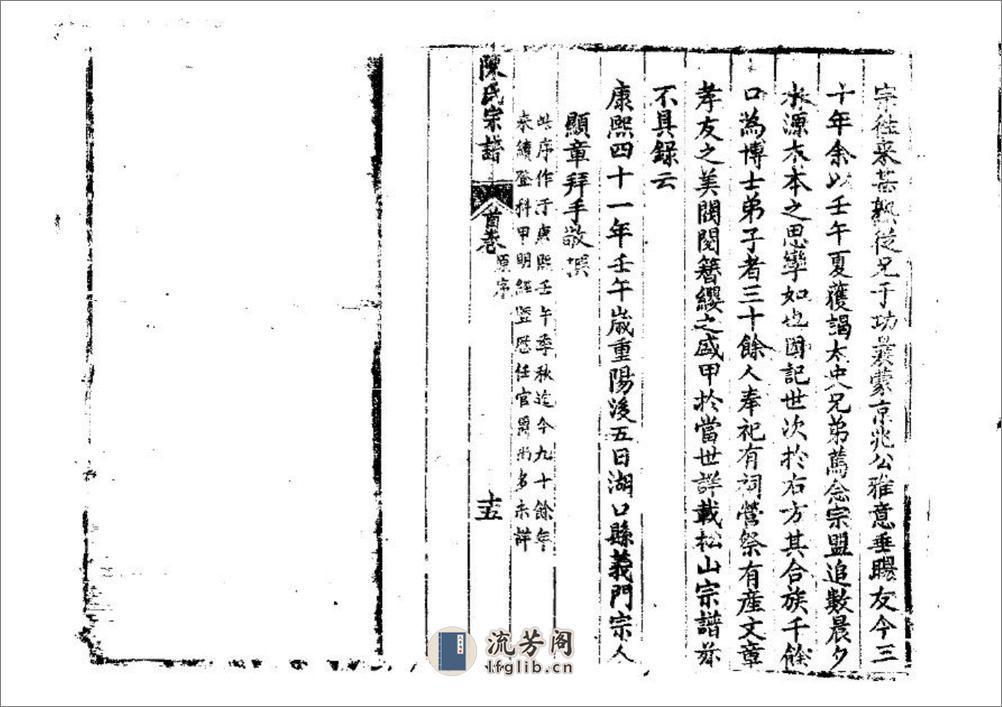 宗往来甚熟從兄于功曩蒙京兆公雅意垂賜友今三
十年余以壬午夏獲謁太史兄弟篤念宗盟追數晨夕
水源木本之思孿如也因記世次於右方其合族千餘
口為博士弟子者三十餘人奉祀有祠營祭有產文章
孝友之美閥閱簪纓之盛甲於當世詳載松山宗譜茲
不具錄云
康熙四十一年壬午歲重陽後五日湖口縣義門宗人
顯章拜手敬撰
此序作于康熙壬午季秋迄今九十餘年
來續登科甲明經暨歷任官爵尚多未詳
陳氏宗譜
首卷
原序
十五
流芳阁
lfglib.cn